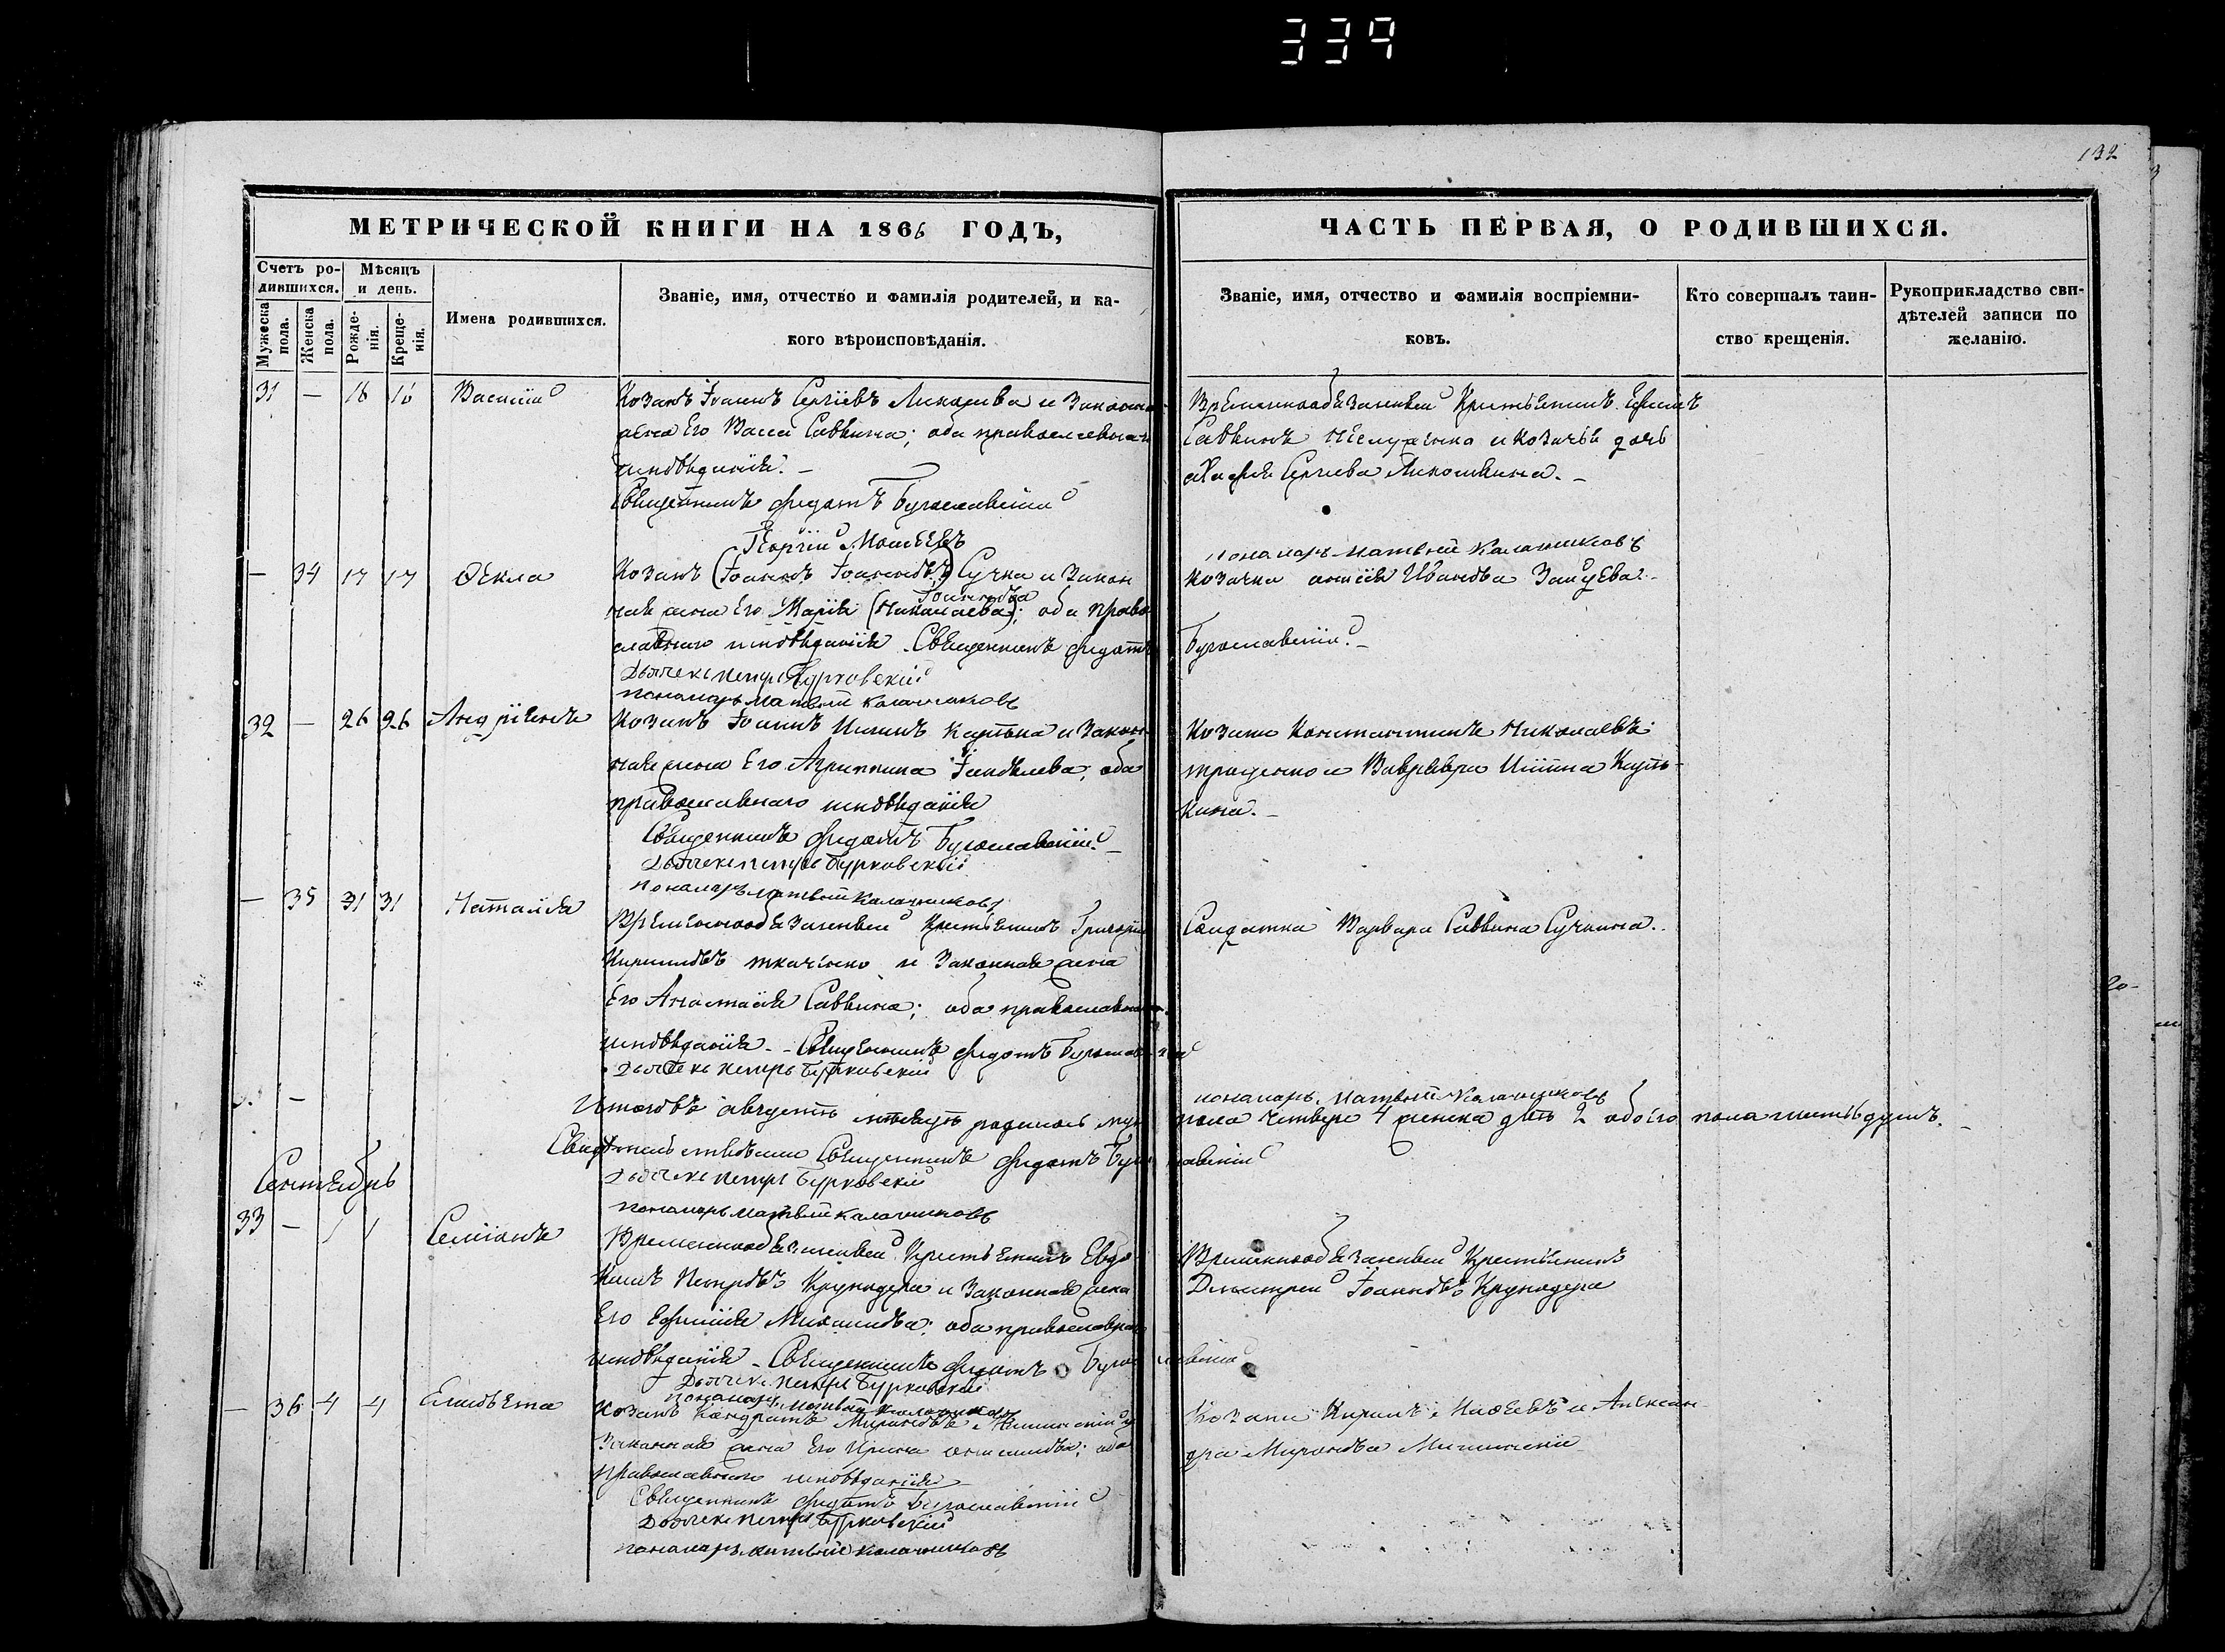 339
132
МЕТРИЧЕСКОЙ КНИГИ НА 1866 ГОДЪ,
Счетъ ро-
дившихся.
Мѣсяцъ
и день.
Мужеска
пола.
Женска
пола.
Рожде-
нія.
Креще-
нія.
Имена родившихся.
Званіе, имя, отчество и фамилія родителей, и ка-
кого вѣроисповѣданія.
ЧАСТЬ ПЕРВАЯ, О РОДИВШИХСЯ.
Званіе, имя, отчество и фамилія воспріемни-
ковъ.
Кто совершалъ таин-
ство крещенія.
Рукоприкладство сви-
дѣтелей записи по
желанію.
31 — 16 16 Василій
Козакъ Іоаннъ Сергіевъ и Законная
жена Его Васса Саввина; оба православнаго
исповѣданія. —
Священникъ Федотъ Бугославскій
Георгій Моисеевъ
Временнообязанный Крестьянинъ Ефимъ
Саввинъ и козачья дочь
Сергиева
пономарь Матвѣй Калашниковъ
— 34 17 17 Ѳекла
Козакъ (Іоаннъ Іоанновъ) Сучка и Закон
ная жена Его Марія (Николаева); оба право
Іоаннова
славнаго исповѣданія. Священникъ Федотъ Бугославскій
Дьячекъ Петръ Бурковскій
пономарь Матвѣй Калашниковъ
Козачка Иванова Зайцева.
32 — 26 26 Андріянъ
Козакъ Іоаннъ и Закон
ная жена Его Агриппина Іаковлева, оба
православнаго исповѣданія
Священникъ Федотъ Бугославскій. —
Дьячекъ Петръ Бурковскій
пономарь Матвѣй Калашниковъ
Козаки Константинъ Николаевъ
и Варвара
кина. —
— 35 31 31 Наталія
Временнообязанный Крестьянинъ Григорій
Кирилловъ Ткаченко и Законная жена
Его Анастасія Саввина; оба православнаго
исповѣданія. — Священникъ Федотъ Бугославскій
Дьячекъ Петръ Бурковскій
Солдатка Варвара Саввина Сучкина.
пономарь Матвѣй Калашниковъ
Итого въ августѣ мѣсяцѣ родилось муж пола четыре 4 женска двѣ 2 обоего пола шесть душъ. —
Свидѣтельствовали Священникъ Федотъ Бугославскій
Дьячекъ Петръ Бурковскій
пономарь Матвѣй Калашниковъ
Сентябрь
33 — 1 1 Семіонъ
Временнообязанный Крестьянинъ Евдо
кимъ Петровъ Круподера и Законная жена
Его Ефимія Михаилова; оба православнаго
исповѣданія — Священникъ Федотъ Бугославскій
Дьячекъ Петръ Бурковскій
пономарь Матвѣй Калашниковъ
Временнообязанный Крестьянинъ
Димитрій Іоанновъ Круподера
— 36 4 4 Елисавета
Козакъ Кондратъ Мироновъ и
Законная жена Его Ирина; оба
православнаго исповѣданія
Священникъ Федотъ Бугославскій
Дьячекъ Петръ Бурковскій
пономарь Матвѣй Калашниковъ
Козаки Кирилъ и Алексан-
дра Миронова